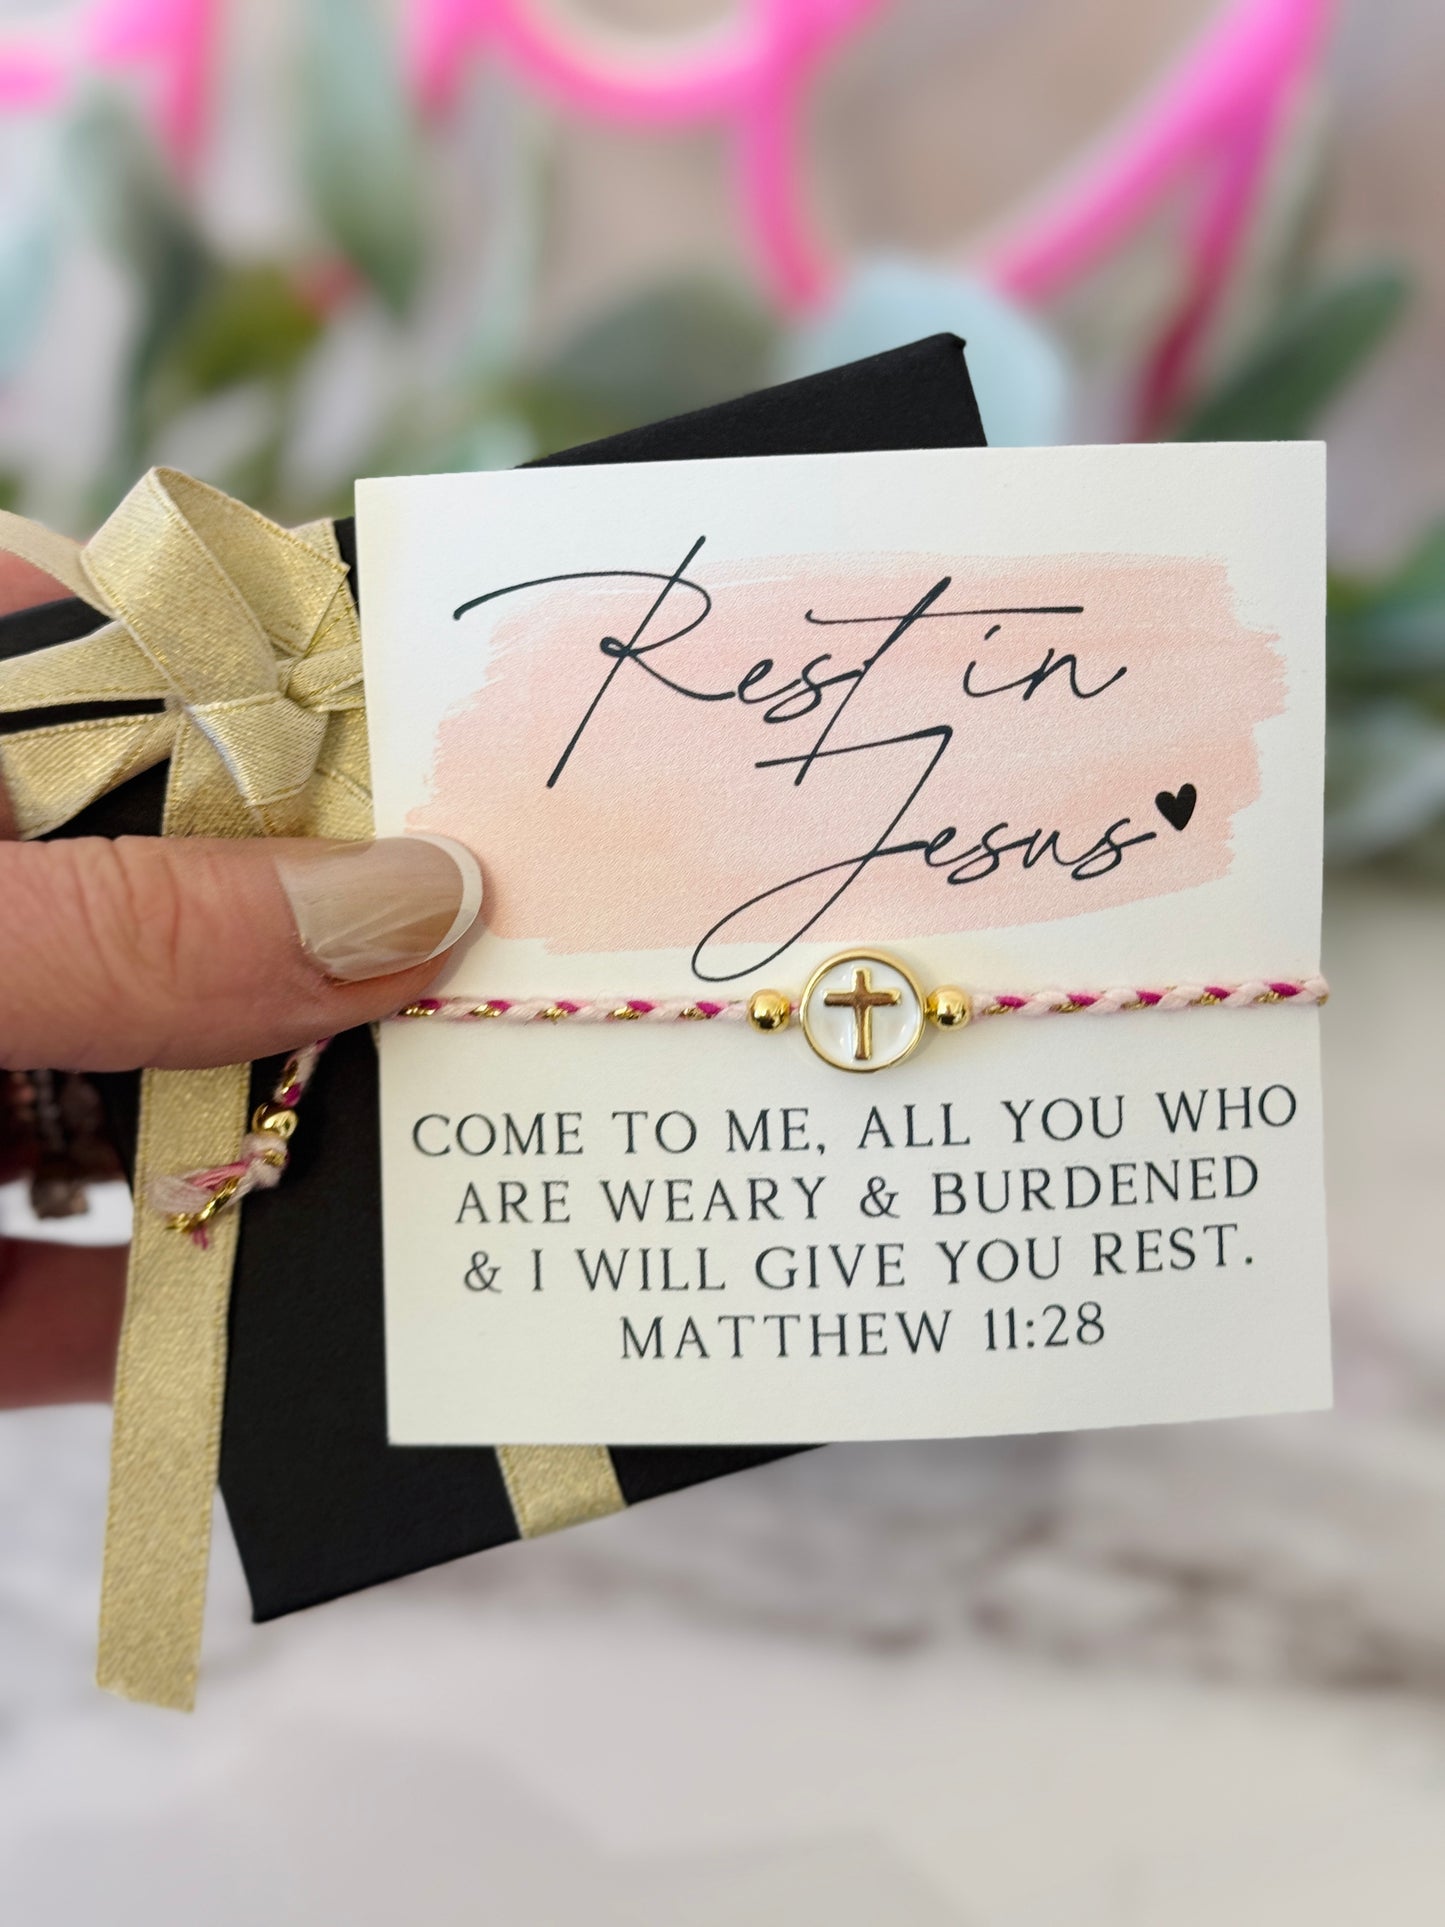 Rest in
Jesus
COME TO ME, ALL YOU WHO
ARE WEARY & BURDENED
& I WILL GIVE YOU REST.
MATTHEW 11:28